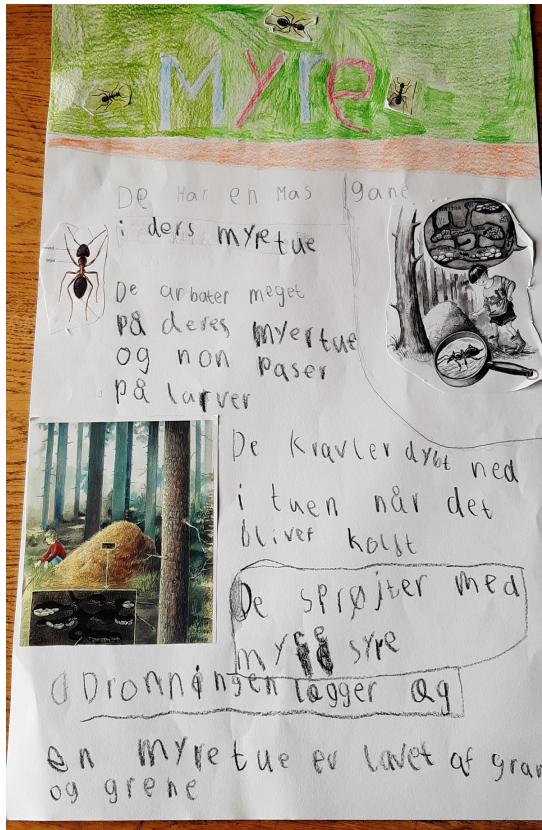 Myre
De Har en Mas gane
i ders myretue
De arbater meget
på deres myertue
og non paser
på larver
De kravler dybt ned
i tuen når det
bliver kolgt
De sprøjter med
myre syre
Dronningen lægger æg
en myretue er lavet af gran
og grene